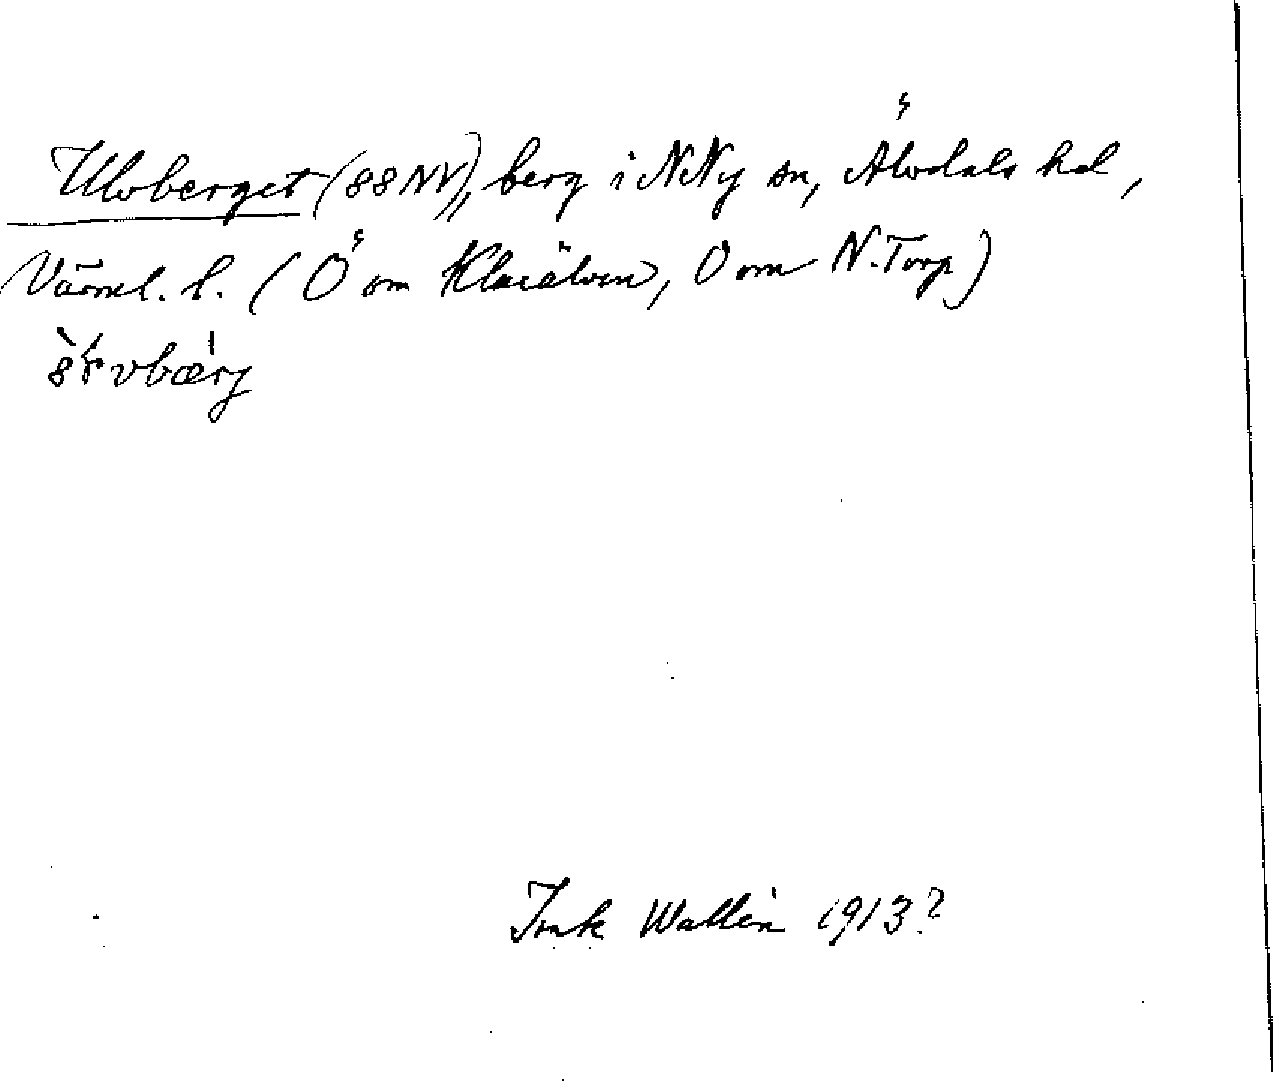 Ulvberget (88 NV), berg i N Ny sn, Älvdals hd,
Värml. l. (Ö om Klarälven, O om N. Torp)
Wallén 1913?